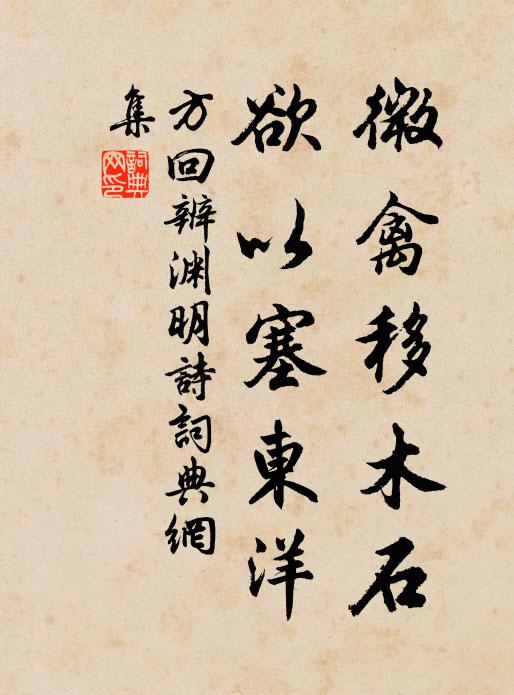 微禽移木石
欲以塞東洋
方回辨渊明詩詞典網
集
詞典網印